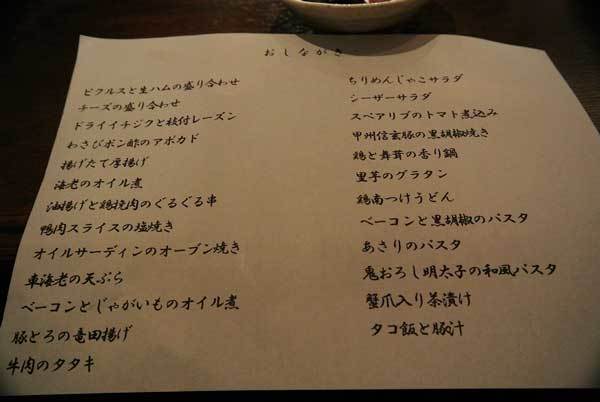 おしながき
ピクルスと生ハムの盛り合わせ
チーズの盛り合わせ
ドライイチジクと枝付レーズン
わさびポン酢のアボカド
揚げたて厚揚げ
海老のオイル煮
油揚げと鶏挽肉のぐるぐる串
鴨肉スライスの塩焼き
オイルサーディンのオーブン焼き
車海老の天ぷら
ベーコンとじゃがいものオイル煮
豚とろの竜田揚げ
牛肉のタタキ
ちりめんじゃこサラダ
シーザーサラダ
スペアリブのトマト煮込み
甲州信玄豚の黒胡椒焼き
鶏と舞茸の香り鍋
里芋のグラタン
鶏南つけうどん
ベーコンと黒胡椒のパスタ
あさりのパスタ
鬼おろし明太子の和風パスタ
蟹爪入り茶漬け
タコ飯と豚汁